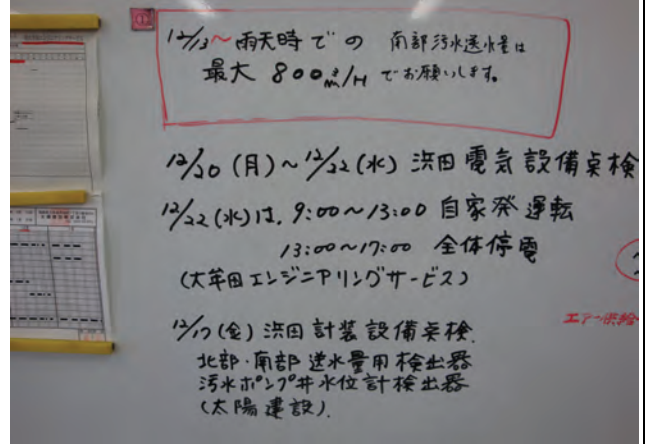 12/13～雨天時での 南部汚水送水量は
最大 800m³/H でお願いします。
12/20(月)～12/22(水) 浜田電気設備点検
12/22(水)は、9:00～13:00 自家発運転
13:00～17:00 全体停電
(大牟田エンジニアリングサービス)
エアー供給
12/17(金) 浜田計装設備点検.
北部・南部送水量用検出器
汚水ポンプ井水位計検出器
(太陽建設).